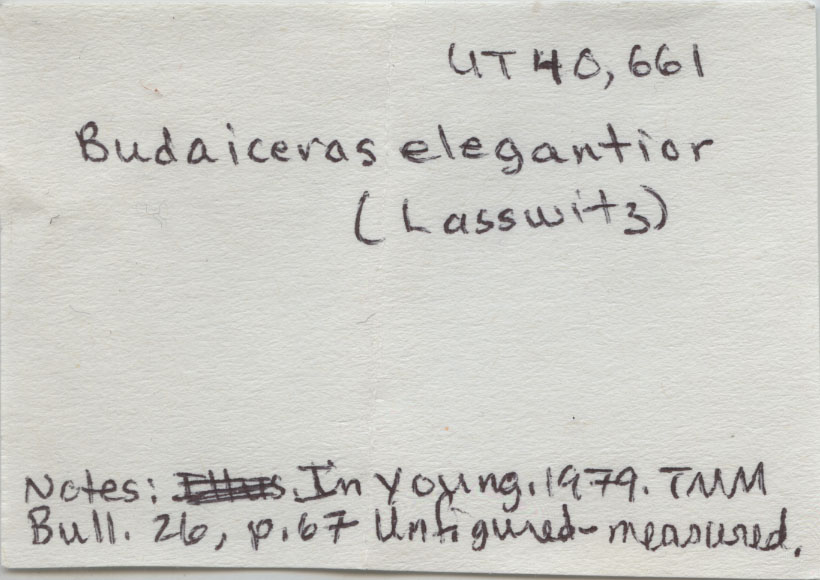 UT 40,661
Budaiceras elegantior
(Lasswitz)
Notes: Illus. In Young. 1979. TMM
Bull. 26, p.67 Unfigured-measured.